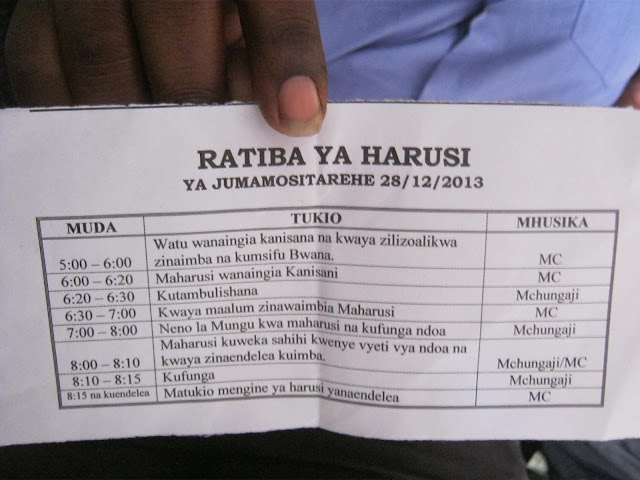 RATIBA YA HARUSI
YA JUMAMOSITAREHE 28/12/2013
MUDA TUKIO MHUSIKA
5:00 – 6:00 Watu wanaingia kanisana na kwaya zilizoalikwa
zinaimba na kumsifu Bwana. MC
6:00 – 6:20 Maharusi wanaingia Kanisani MC
6:20 – 6:30 Kutambulishana Mchungaji
6:30 – 7:00 Kwaya maalum zinawaimbia Maharusi MC
7:00 – 8:00 Neno la Mungu kwa maharusi na kufunga ndoa Mchungaji
Maharusi kuweka sahihi kwenye vyeti vya ndoa na
8:00 – 8:10 kwaya zinaendelea kuimba. Mchungaji/MC
8:10 – 8:15 Kufunga Mchungaji
8:15 na kuendelea Matukio mengine ya harusi yanaendelea MC